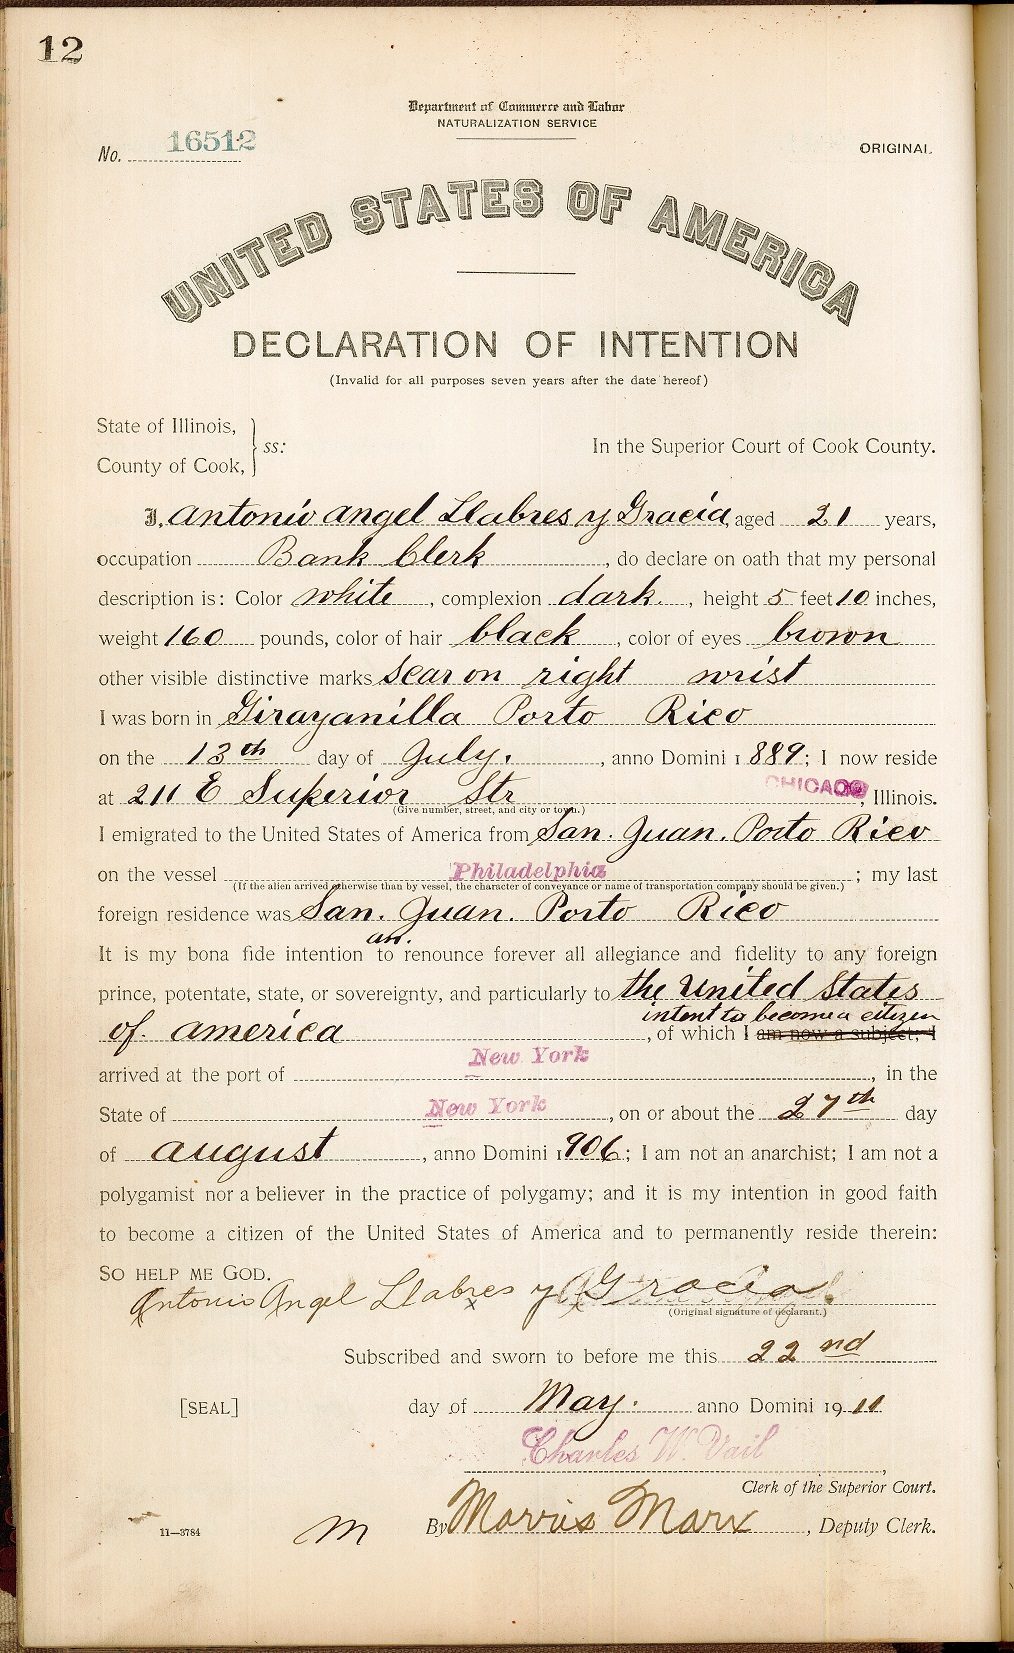 12
Department of Commerce and Labor
NATURALIZATION SERVICE
No. 16512
ORIGINAL
UNITED STATES OF AMERICA
DECLARATION OF INTENTION
(Invalid for all purposes seven years after the date hereof)
State of Illinois,
County of Cook,
ss:
In the Superior Court of Cook County.
I, Antonio Angel Llabres y Gracia, aged 21 years,
occupation Bank Clerk, do declare on oath that my personal
description is: Color white, complexion dark., height 5 feet 10 inches,
weight 160 pounds, color of hair black, color of eyes brown
other visible distinctive marks Scar on right wrist
I was born in Girayanilla Porto Rico
on the 13th day of July., anno Domini 1889; I now reside
at 211 E Superior Str CHICAGO, Illinois.
(Give number, street, and city or town.)
I emigrated to the United States of America from San. Juan. Porto Rico
on the vessel Philadelphia; my last
(If the alien arrived otherwise than by vessel, the character of conveyance or name of transportation company should be given.)
foreign residence was San. Juan. Porto Rico
an.
It is my bona fide intention to renounce forever all allegiance and fidelity to any foreign
prince, potentate, state, or sovereignty, and particularly to the United States
intent to become a citizen
of America, of which I am now a subject; I
arrived at the port of New York, in the
State of New York, on or about the 27th day
of August, anno Domini 1906; I am not an anarchist; I am not a
polygamist nor a believer in the practice of polygamy; and it is my intention in good faith
to become a citizen of the United States of America and to permanently reside therein:
SO HELP ME GOD.
Antonio Angel Llabres y Gracia.
(Original signature of declarant.)
Subscribed and sworn to before me this 22nd
[SEAL]
day of May. anno Domini 1911
Charles W. Vail,
Clerk of the Superior Court.
11—3784
M
By Morris Marx, Deputy Clerk.